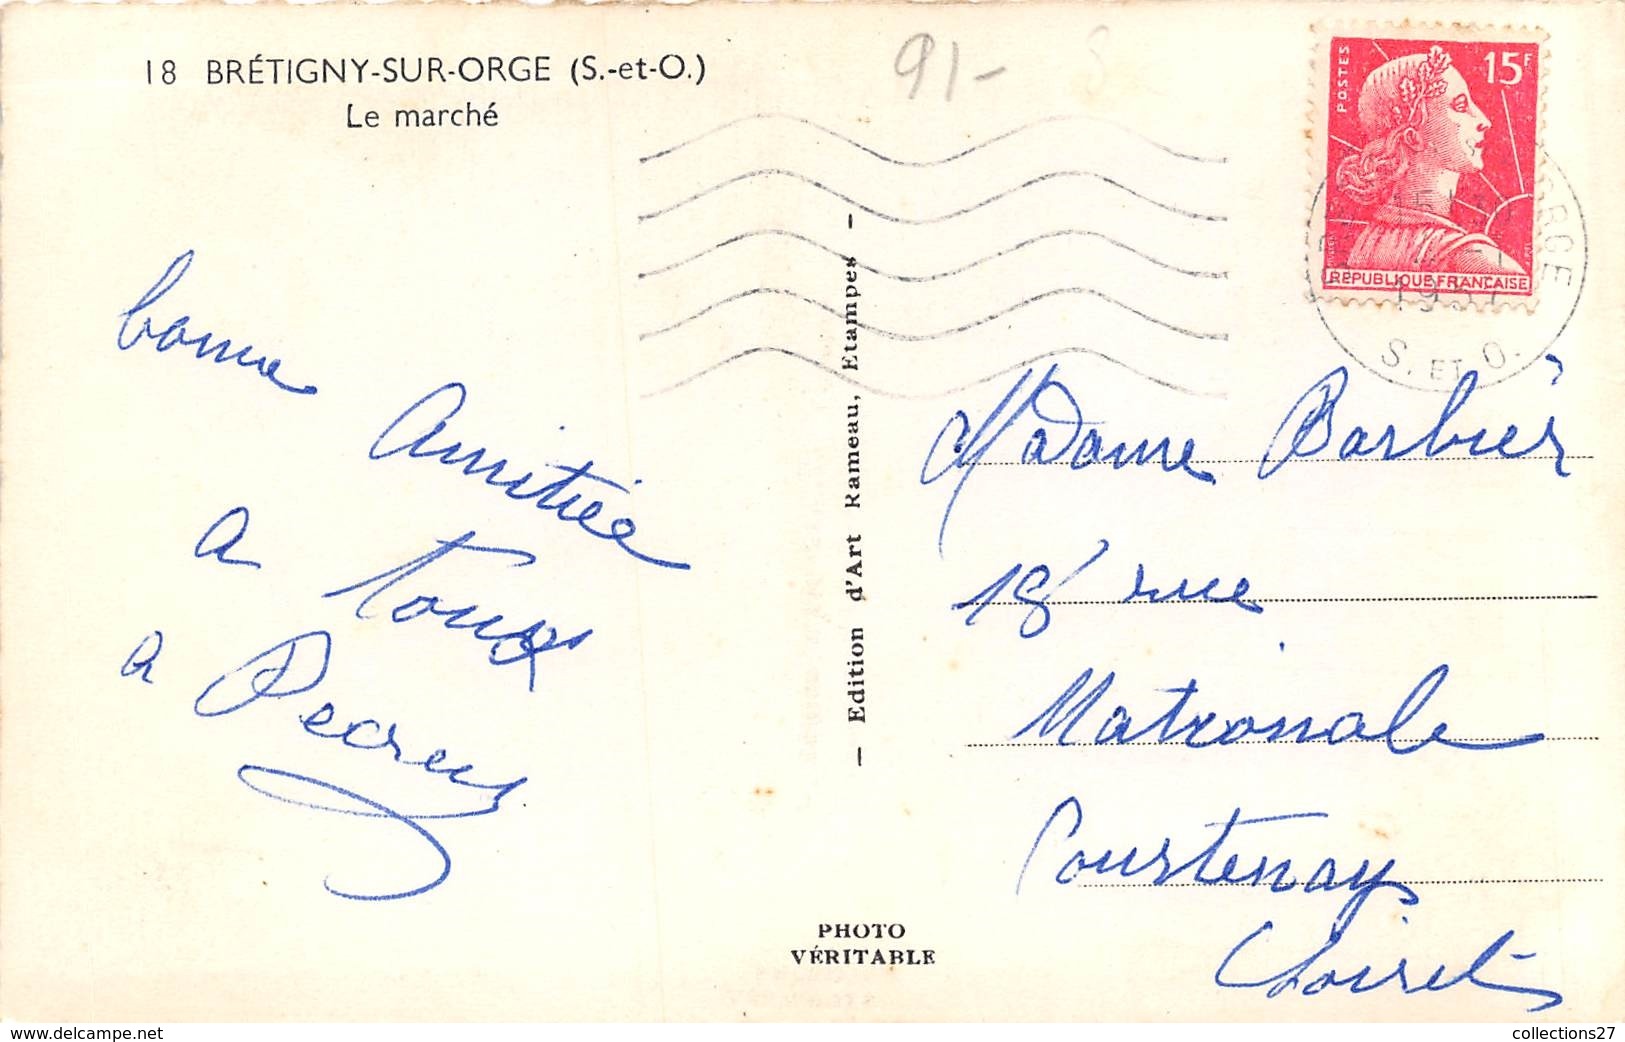 18 BRÉTIGNY-SUR-ORGE (S.-et-O.)
Le marché
91-
POSTES
15F
RÉPUBLIQUE FRANÇAISE
ORGE
1957
S. ET O.
bonne
Amitiée
a tous
a
— Edition d'Art Rameau, Etampes —
Madame Barbier
18 rue
Nationale
Courtenay
Loiret
PHOTO
VÉRITABLE
www.delcampe.net
collections27